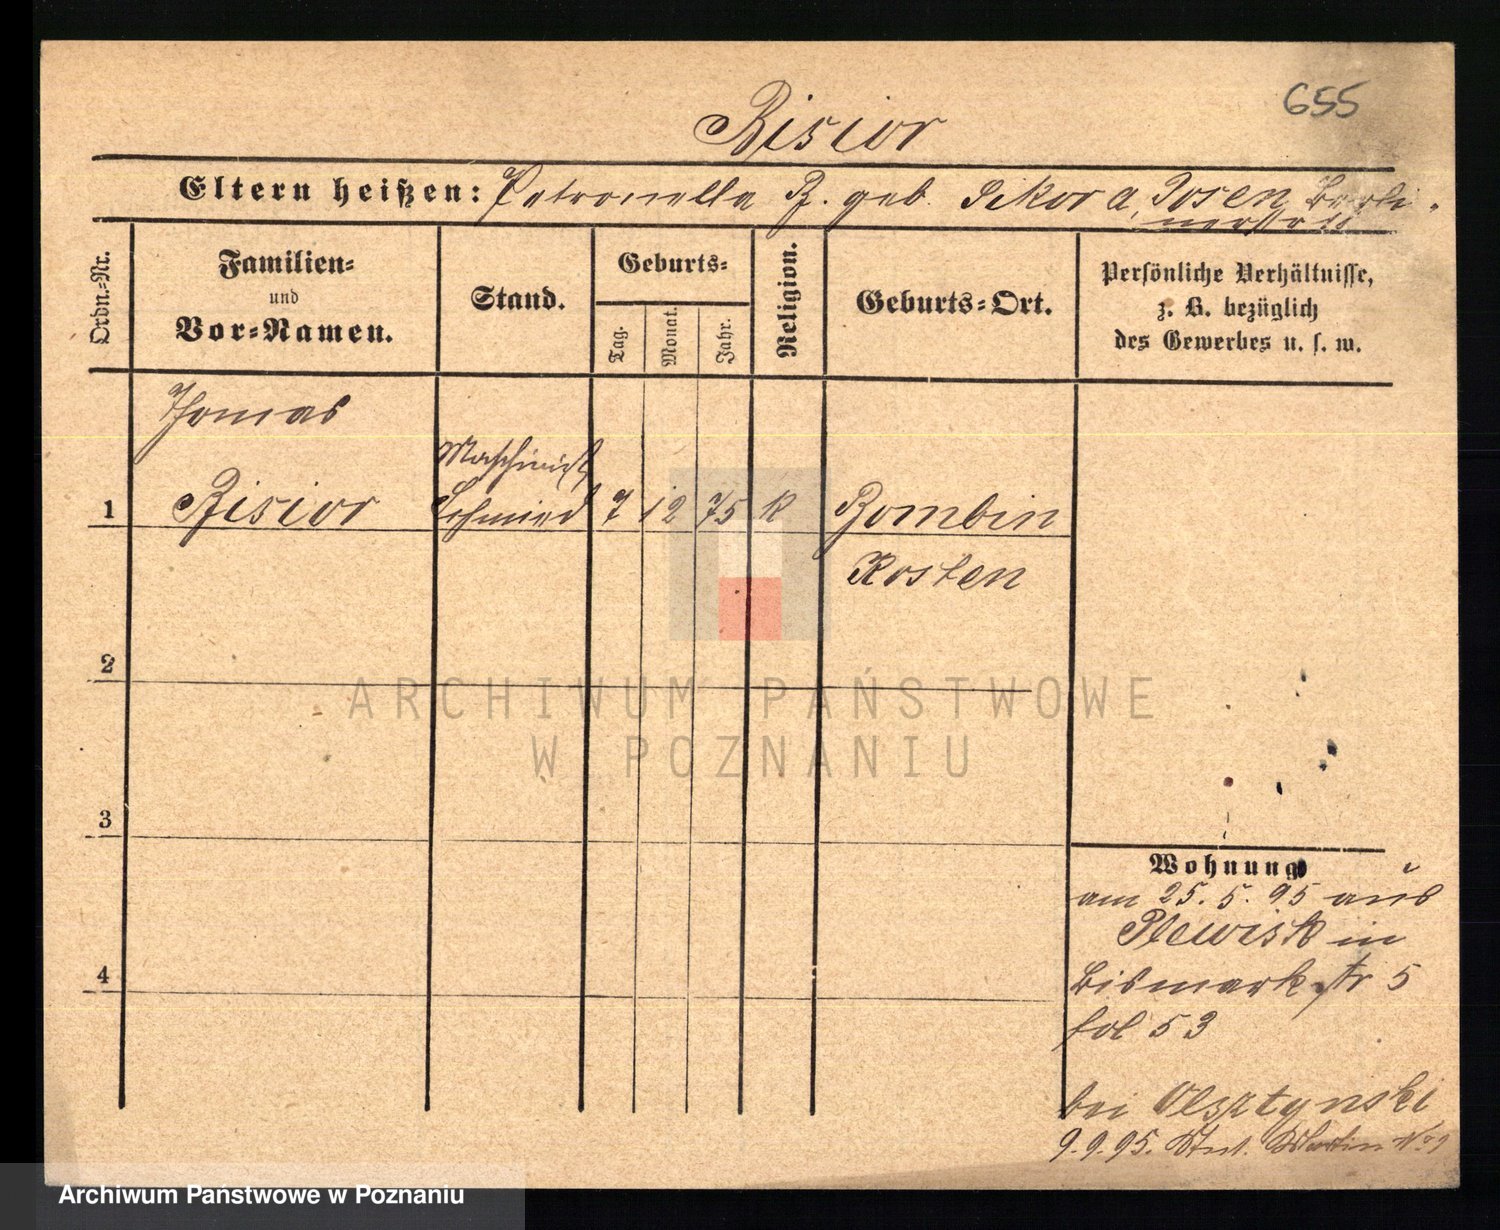 655
Bisior
Eltern heißen: Petronella B. geb. Sikora, Posen Berli-
nerstr 18
Ordn.-Nr.
Familien-
und
Vor-Namen.
Stand.
Geburts-
Tag.
Monat.
Jahr.
Religion.
Geburts-Ort.
Persönliche Verhältnisse,
z. B. bezüglich
des Gewerbes u. s. w.
Thomas
Maschinist
1 Bisior Schmied 7 12 75 k Bombin
Kosten
2
3
4
Wohnung
am 25. 5. 95 aus
Plewisk in
Bismarkstr 5
fol 53
bei Olsztynski
9. 9. 95. St Martin No 9
ARCHIWUM PAŃSTWOWE
W POZNANIU
Archiwum Państwowe w Poznaniu